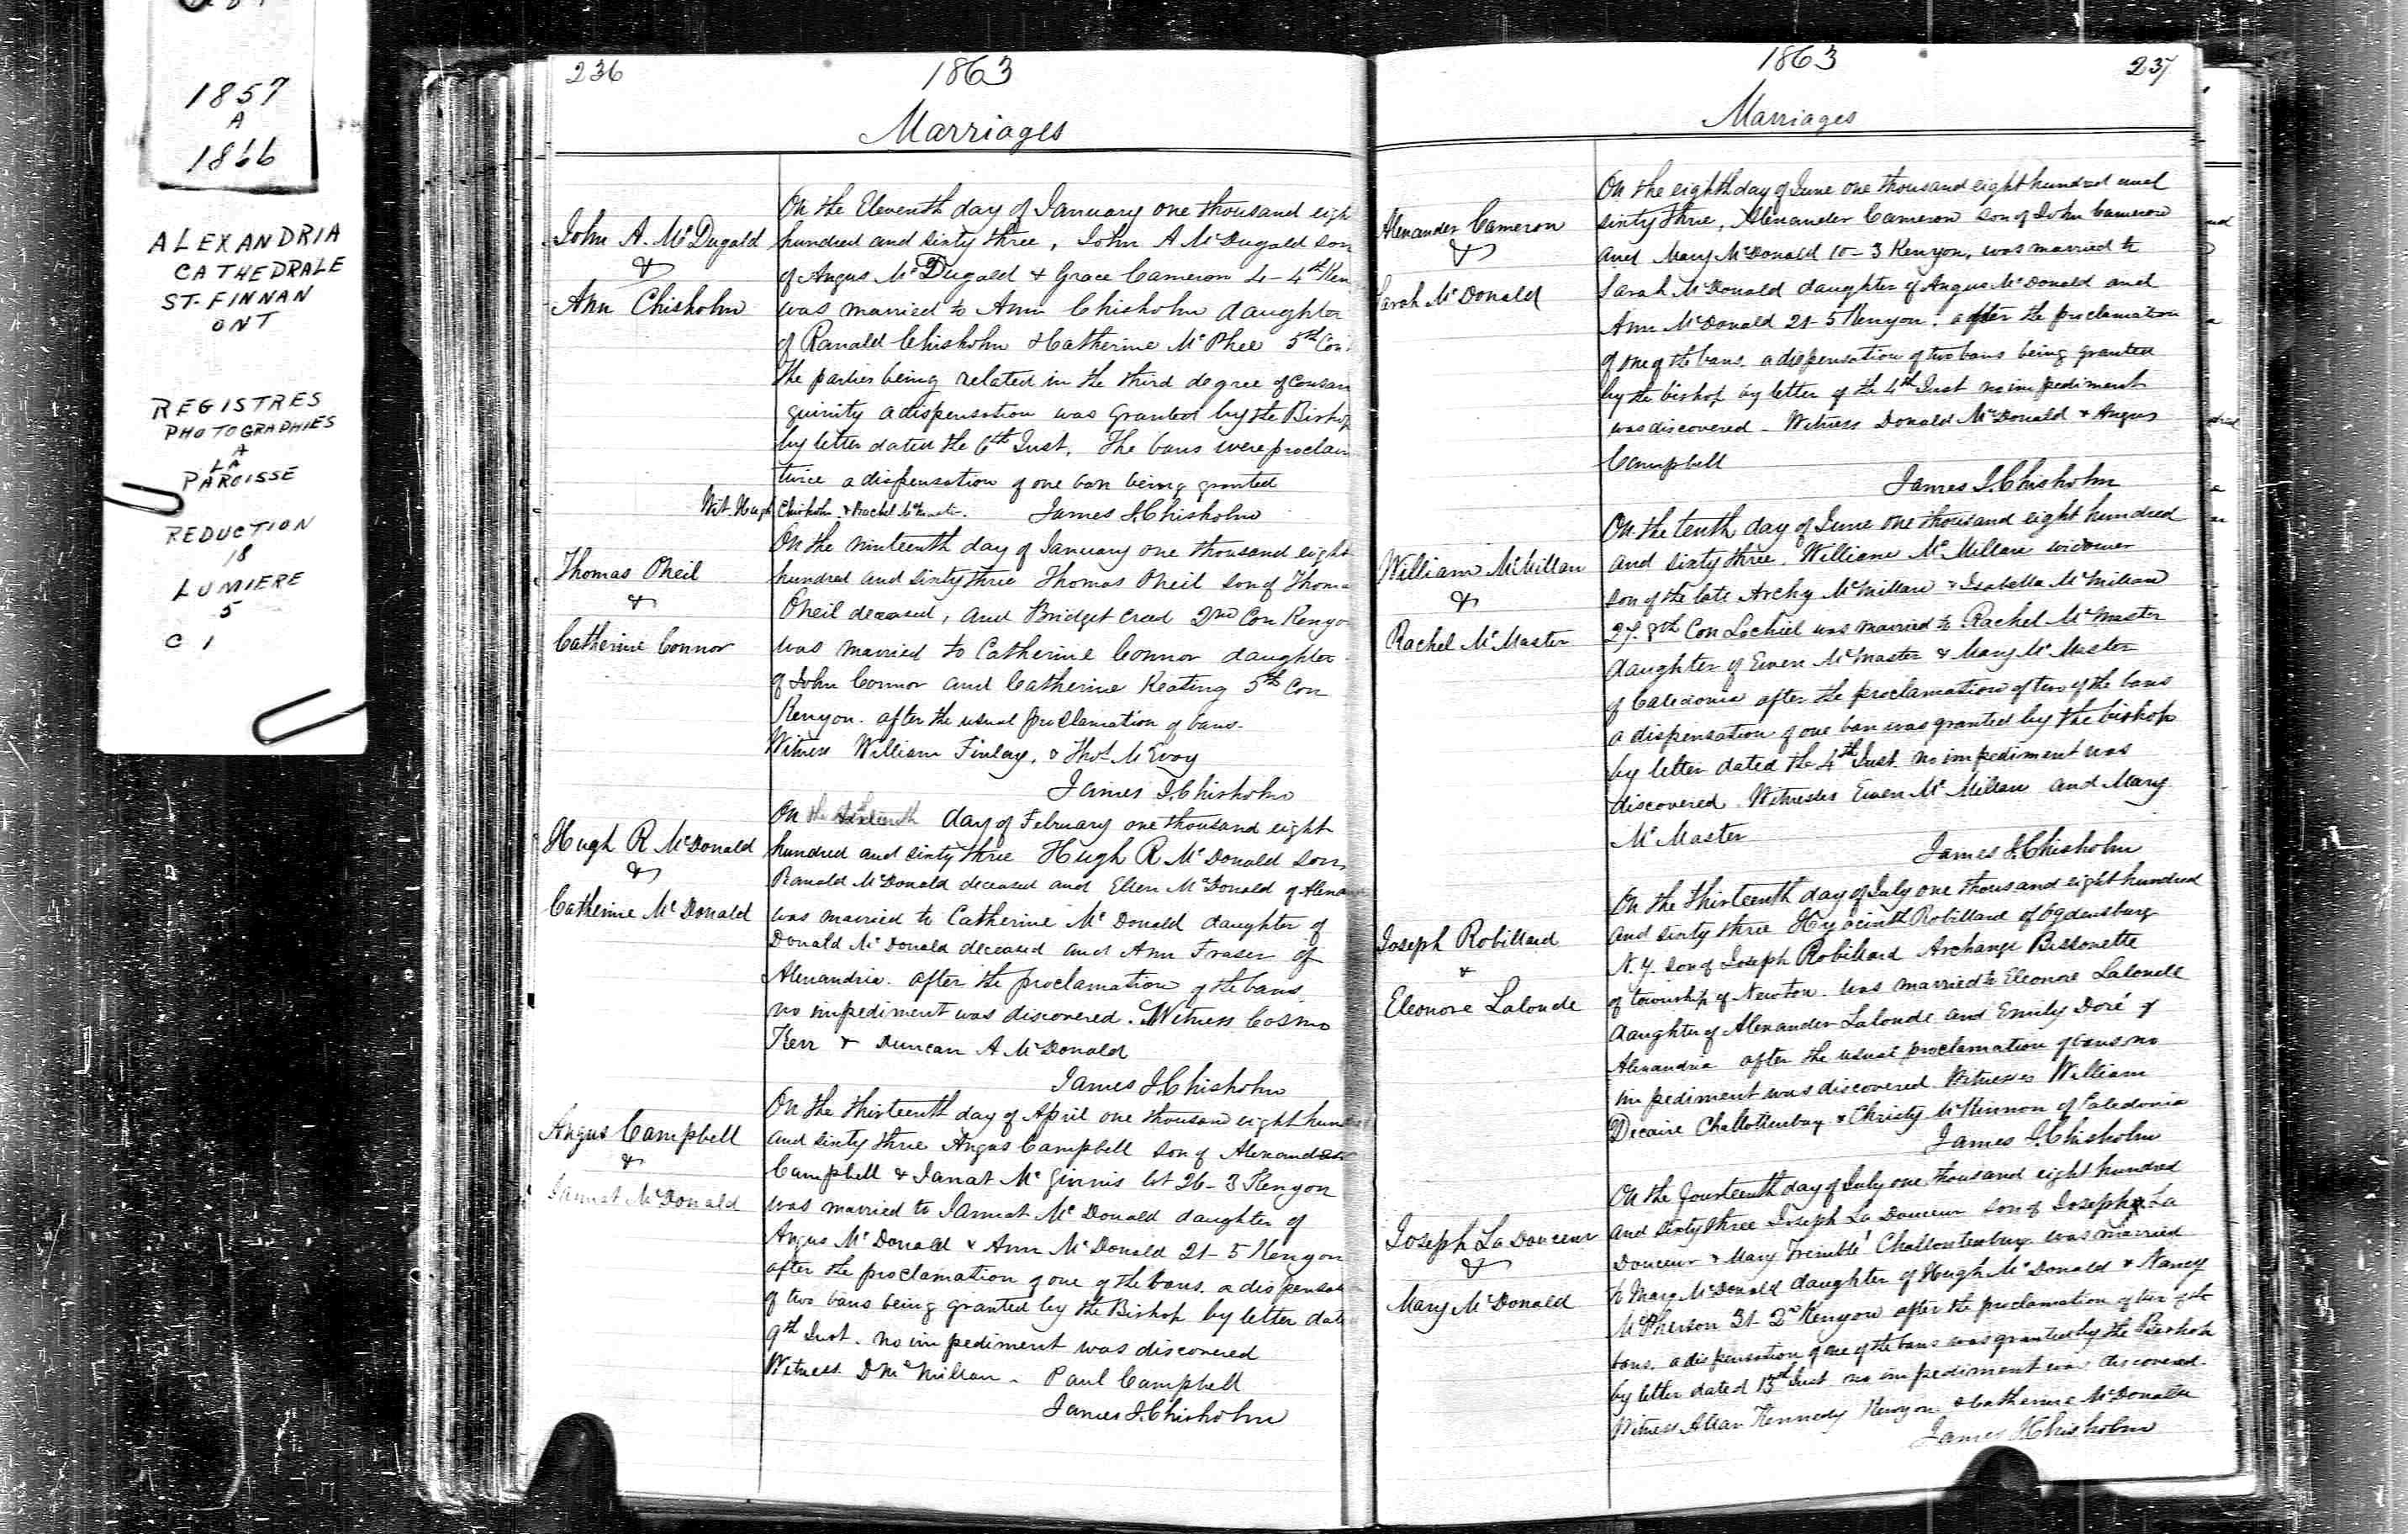 1857
A
1866
ALEXANDRIA
CATHEDRALE
ST-FINNAN
ONT
REGISTRES
PHOTOGRAPHIES
A
LA
PAROISSE
REDUCTION
18
LUMIERE
5
C 1
236
1863
Marriages
John A. McDugald
&
Ann Chisholm
On the Eleventh day of January one thousand eigh
hundred and sixty three, John A McDugald son
of Angus McDugald & Grace Cameron 4-4th Ken
was married to Ann Chisholm daughter
of Ranald Chisholm & Catherine McPhee 5th Con
The parties being related in the third degree of consan
guinity a dispensation was granted by the Bishop
by letter dated the 6th Inst. The bans were proclaim
twice a dispensation of one ban being granted
Wit. Hugh Chisholm & Rachel
James J. Chisholm
Thomas Oneil
&
Catherine Connor
On the ninteenth day of January one thousand eight
hundred and sixty three Thomas Oneil son of Thoma
Oneil deceased, and Bridget 2nd Con Kenyo
was married to Catherine Connor daughter
of John Connor and Catherine Keating 5th Con
Kenyon. after the usual proclamation of bans.
Witness William Finlay, & Thos McEvoy
James J. Chisholm
Hugh R McDonald
&
Catherine McDonald
On the day of February one thousand eight
hundred and sixty three Hugh R McDonald son
Ranald McDonald deceased and Ellen McDonald of Alexan
was married to Catherine McDonald daughter of
Donald McDonald deceased and Ann Fraser of
Alexandria. after the proclamation of the bans
no impediment was discovered. Witness Cosmo
Kerr & Duncan A McDonald
James J. Chisholm
Angus Campbell
&
Jannat McDonald
On the thirteenth day of April one thousand eight hund
and sixty three Angus Campbell son of Alexander
Campbell & Janat McGinnis lot 26-3 Kenyon
was married to Jannat McDonald daughter of
Angus McDonald & Ann McDonald 21-5 Kenyon
after the proclamation of one of the bans. a dispensat
of two bans being granted by the Bishop by letter dat
9th Inst. no impediment was discovered
Witness. D McMillan - Paul Campbell
James J. Chisholm
1863
237
Marriages
Alexander Cameron
&
Sarah McDonald
On the eighth day of June one thousand eight hundred and
sixty three, Alexander Cameron son of John Cameron
and Mary McDonald 10-3 Kenyon, was married to
Sarah McDonald daughter of Angus McDonald and
Ann McDonald 21-5 Kenyon. after the proclamation
of one of the bans. a dispensation of two bans being granted
by the bishop by letter of the 4th Inst no impediment
was discovered - Witness Donald McDonald & Angus
Campbell
James J. Chisholm
William McMillan
&
Rachel McMaster
On the tenth day of June one thousand eight hundred
and sixty three. William McMillan widower
son of the late Archy McMillan & Isabella McMillan
27-8th Con Lochiel was married to Rachel McMaster
daughter of Ewen McMaster & Mary McMaster
of Caledonia after the proclamation of two of the bans
a dispensation of one ban was granted by the bishop
by letter dated the 4th Inst. no impediment was
discovered. Witnesses Ewen McMillan and Mary
McMaster
James J. Chisholm
Joseph Robillard
&
Eleonore Lalonde
On the thirteenth day of July one thousand eight hundred
and sixty three Hyacinth Robillard of Ogdensburg
N.Y. son of Joseph Robillard Archange Bissonette
of township of Newton. was married to Eleonore Lalonde
daughter of Alexander Lalonde and Emily Doré of
Alexandria after the usual proclamation of bans no
impediment was discovered. Witnesses William
Decaire Challottenbury & Christy McKinnon of Caledonia
James J. Chisholm
Joseph La Douceur
&
Mary McDonald
On the fourteenth day of July one thousand eight hundred
and sixty three Joseph La Douceur son of Joseph La
Douceur & Mary Trimble Challottenbury was married
to Mary McDonald daughter of Hugh McDonald & Nancy
McPherson 31-2nd Kenyon after the proclamation of two of the
bans. a dispensation of one of the bans was granted by the Bishop
by letter dated 13th Inst no impediment was discovered.
Witness Allan Kennedy Kenyon & Catherine McDonald
James J. Chisholm